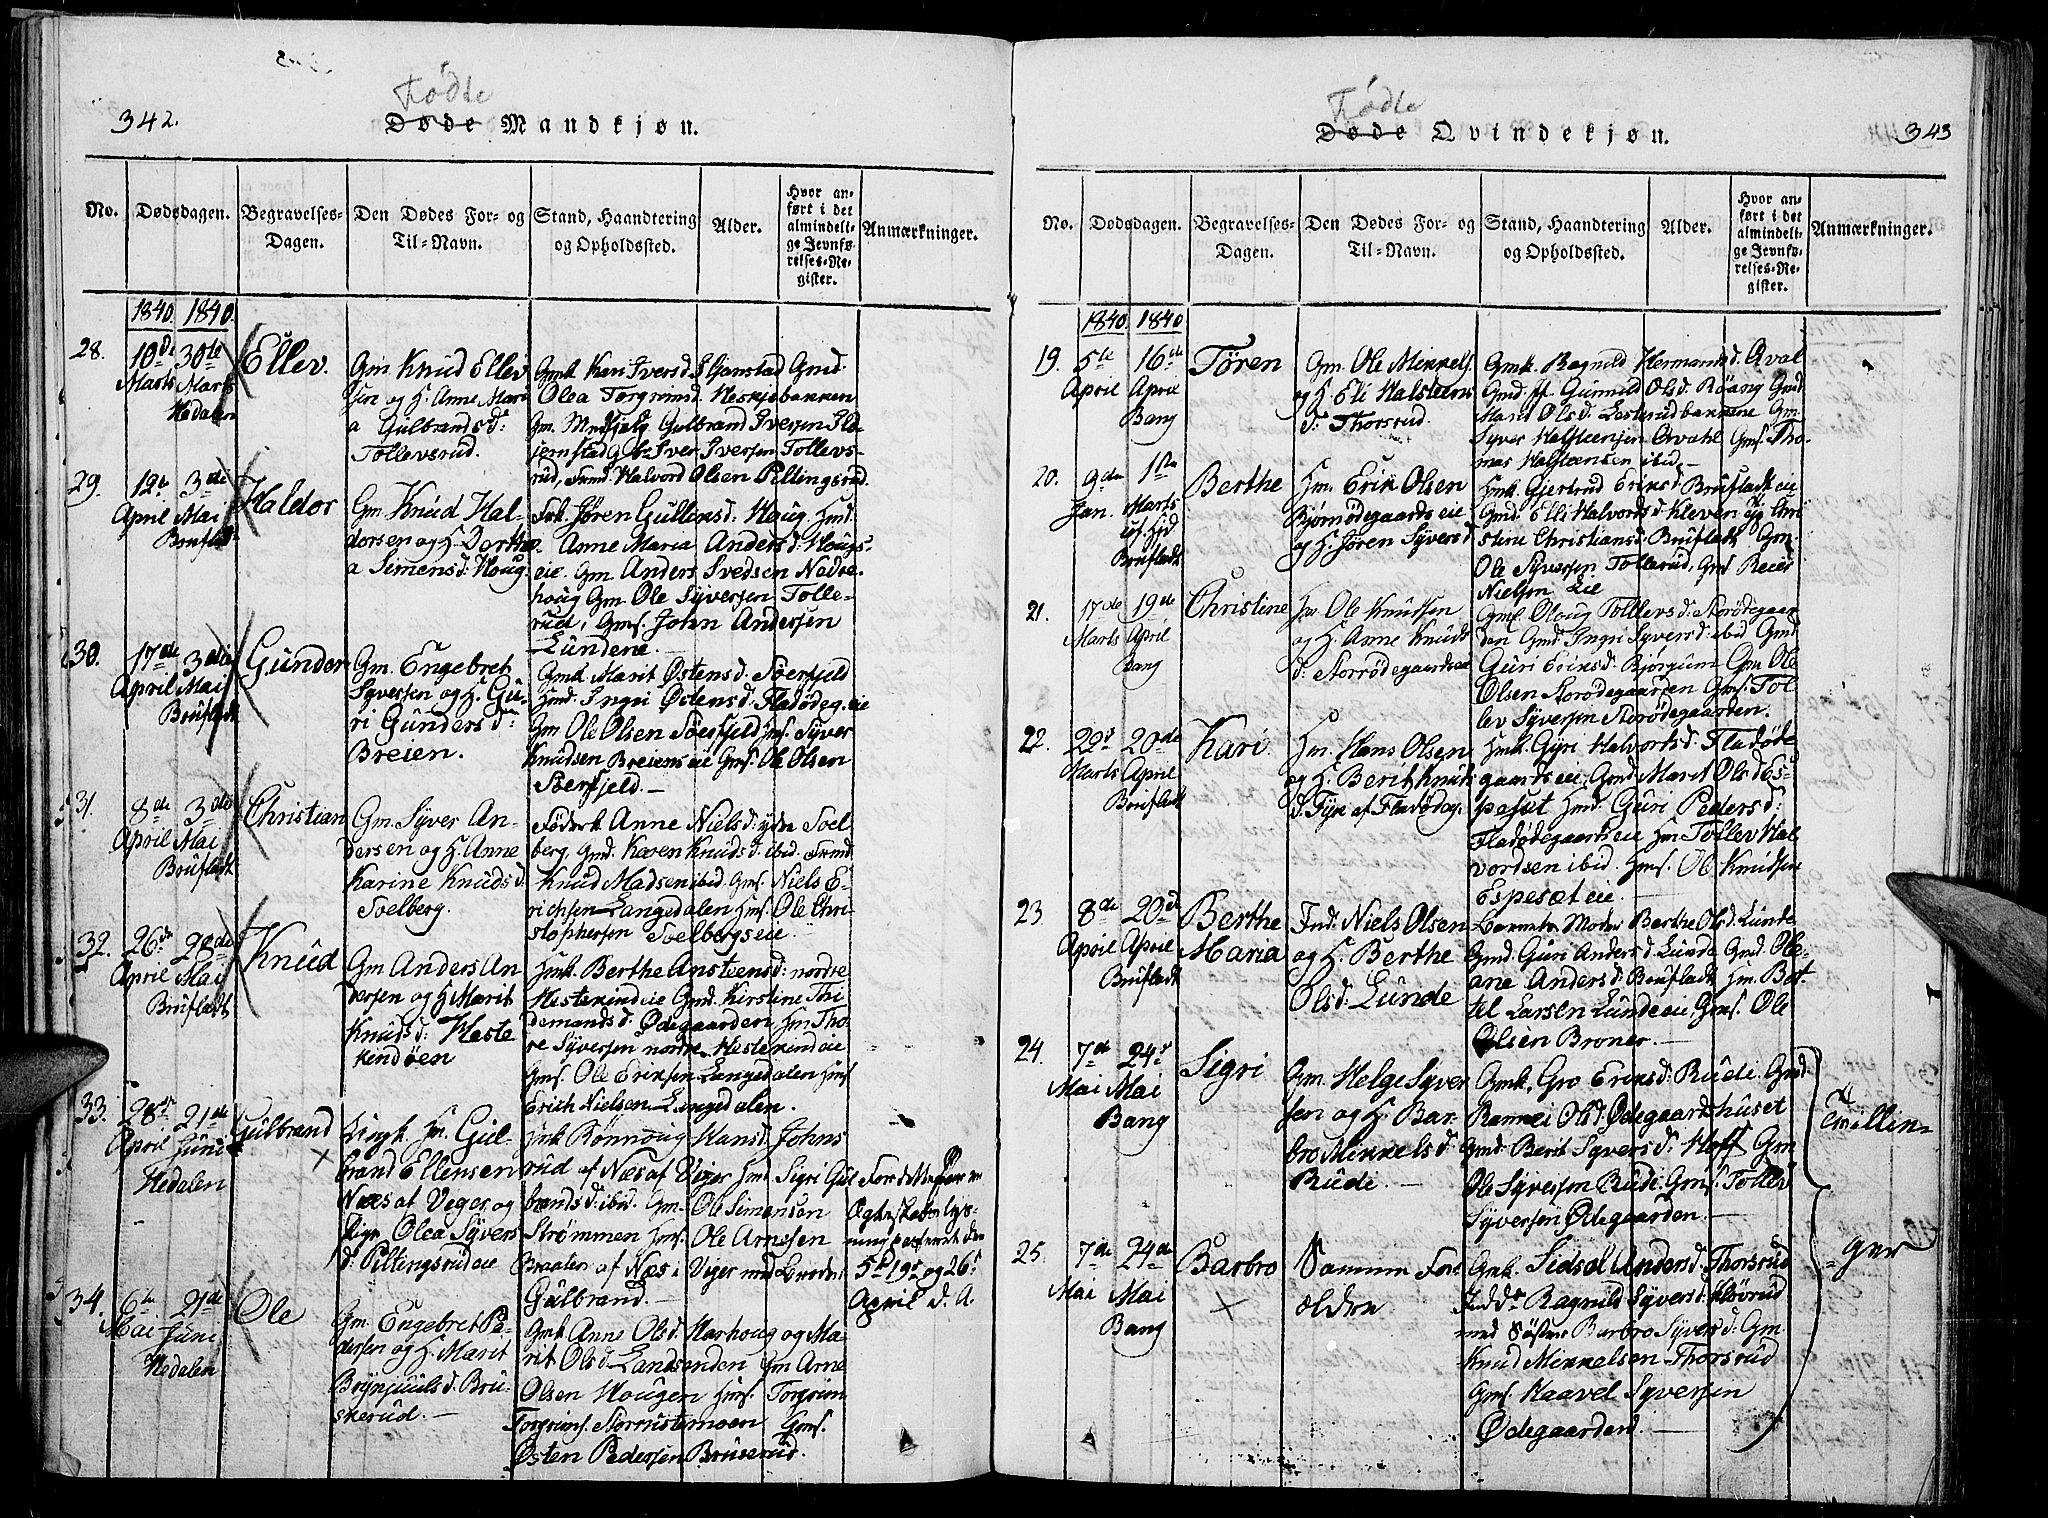 342.
Fødte
Døde Mandkjøn.
No.
Dødsdagen.
Begravelses-
Dagen.
Den Dødes For- og
Til-Navn.
Stand, Haandtering
og Opholdssted.
Alder.
Hvor an-
ført i det
almindeli-
ge Jevnfø-
relses-Re-
gister.
Anmærkninger.
1840. 1840.
28.
10de 30te
Marts Marts
Hedalen
Ellev.
Gm Knud Ellev
sen og H. Anne Mari
a Gulbrandsd:
Tollevsrud.
Gmk Kari Iversd: Iljernstad Gmd.
Olea Torgrimsd. Heskjebakken
Gm. Medhjelp. Gulbrand Iversen Ilo-
jernstad Iver Iversen Tollevs-
rud, Halvord Olsen Piltingsrud.
29.
12te 3die
April Mai
Brufladt
Haldor
Gm. Knud Hal-
dorsen og H. Dorthe
a Simensd: Houg.
Fmk. Jøren Gullensd: Houg. Hmd.
Anne Maria Andersd: Hougs-
eie. Gm Anders Svedsen Nedre
houg Gm. Ole Syversen Tolle-
rud, Gms. John Andersen
Lundene.
30.
17de 3die
April Mai
Brufladt
Gunder
Gm. Engebret
Syversen og H. Gu-
ri Gundersd:
Breien.
Gmk Marit Østensd: Soerfjeld
Hmd. Ingri Østensd: Fladødeg.eie
Gm Ole Olsen Sørfjeld Hms. Syver
Knudsen Breienseie Gms. Ole Olsen
Soerfjeld.
31.
8de 3die
April Mai
Brufladt
Christian
Gm. Syver An-
dersen og H. Anne
Karine Knudsd.
Soelberg.
Føderk Anne Nielsd: ydre Soel
berg. Gmd. Karen Knudsd: ibid.
Knud Madsen ibid. Gms. Niels E-
richsen Langedalen Hms. Ole Chri-
stophersen Soelbergseie.
32.
26de 28de
April Mai
Brufladt
Knud
Gm Anders An
dersen og H. Marit
Knudsd: Heste
kindøen
Hmk. Berthe Ansteensd: nordre
Hestekindeie Gmd. Kirstine Tri
demandsd: Ødegaarden, Hm Tho-
re Syversen nordre Hestekindeie
Gms. Ole Eriksen Langedalen Hms
Erich Nielsen Langedalen.
33.
28de 21de
April Juni
Hedalen
Gulbrand
Ungk. Hm. Gul-
brand Ellensen
Næs af Veger, og
Pige Olea Syvers
d: Piltingsrudeie
Rønnoug Hansd. Johns
rud af Næs af Viger Hmd. Sigri Gul
brandsd: ibid. Gm. Ole Simensen
Strømmen Hms. Ole Arnesen
Braaten af Næs i Viger med
Gulbrand.
Ægteskabs lys-
ning passeret den
5te 19de og 26de
April d. A.
34.
6te 21de
Mai Juni
Hedalen
Ole
Gm. Engebret Pe-
dersen og H. Marit
Brynjulsd. Bru-
skerud.
Gmk Anne Olsd. Marhoug og Ma-
rit Olsd: Landsenden Gm Arne
Olsen Hougen Hms. Torgrim
Torgrims. Storrustemoen Gms.
Østen Pedersen Bruserud.
Fødte
Døde Qvindekjøn.
343
No.
Dødsdagen.
Begravelses-
Dagen.
Den Dødes For- og
Til-Navn.
Stand, Haandtering
og Opholdssted.
Alder.
Hvor an-
ført i det
almindeli-
ge Jevnfø-
relses-Re-
gister.
Anmærkninger.
1840. 1840
19.
5te 16de
April April
Bang
Tøren
Gm. Ole Mikkels.
og H. Eli Halsteens
d: Thorsrud.
Gmk. Ragnild Hermansd. Qval
Gmd. Gunnild Olsd. Røang Gmd.
Marit Olsd. Lesterudbakkene Gm.
Syver Halsteensen Qvahl Gms. Tho-
mas Halsteensen ibid
20.
9de 1ste
Jan. Marts
Brufladt
Berthe
Hm. Erik Olsen
Bjørnødegaards eie
og H. Jøren Syversd
Hmk. Gjertrud Eriksd Bruflads eie
Gmd. Elli Halvordsd. Kleven og Chri
stine Christiansd. Brufladt Gm.
Ole Syversen Tollerud, Gms Reier
Nielsen Lie
21.
17de 19de
Marts April
Bang
Christine
Hm Ole Knudsen
og H. Anne Knuds
d: Storrødegaardseie
Gmk. Oloug Tollevsd: Storødegaar
den Gmd. Ingri Syversd: ibid Gmd.
Guri Eriksd: Bjørgum Gm. Ole
Olsen Storødegaarden Gms. Tol
lev Syversen Storødegaarden.
22.
22de 20de
Marts April
Brufladt
Kari
Hm. Hans Olsen
og H. Berit Knuts
d. af Fladødeg.
Hmk. Gjøri Halvordsd. Fladøde
gaards eie, Gmd. Marit Olsd Es-
peset Hmd. Guri Pedersd:
Fladødegaards eie Hm Tollev Hal
vordsen ibid. Hms. Ole Knudsen
Espesæteie.
23
8de 20de
April April
Brufladt
Berthe
Maria
Ind. Niels Olsen
og H. Berthe
Olsd. Lunde
Barnets Moder Berthe Olsd. Lunde
Gmd. Guri Andersd: Lunde Gmd. Ole-
ane Andersd: Bruflads. Hm. Bot-
tel Larsen Lundeeie, Gms. Ole
Olsen Broner.
24.
7de 24de
Mai Mai
Bang
Sigri
Gm. Helge Syver
sen og H. Bar
bro Mikkelsd:
Rudi.
Gmk. Gro Eriksd: Rudi. Gmd.
Rannei Olsd. Ødegaardshuset
Gmd. Berit Syversd. Hoff Gm.
Ole Syversen Rudi. Gms. Tollev
Syversen Ødegaarden.
Tvillin-
25.
7de 24de
Mai Mai
Bang
Barbro
Samme For
ældre
Gmk. Sidsel Andersd: Thorsrud
Ragnild Syversd. Kløvrud
med Søster Barbro Syversd: Gm.
Knud Mikkelsen Thorsrud
Gms. Kaavel Syversen
Ødegaarden.
ger